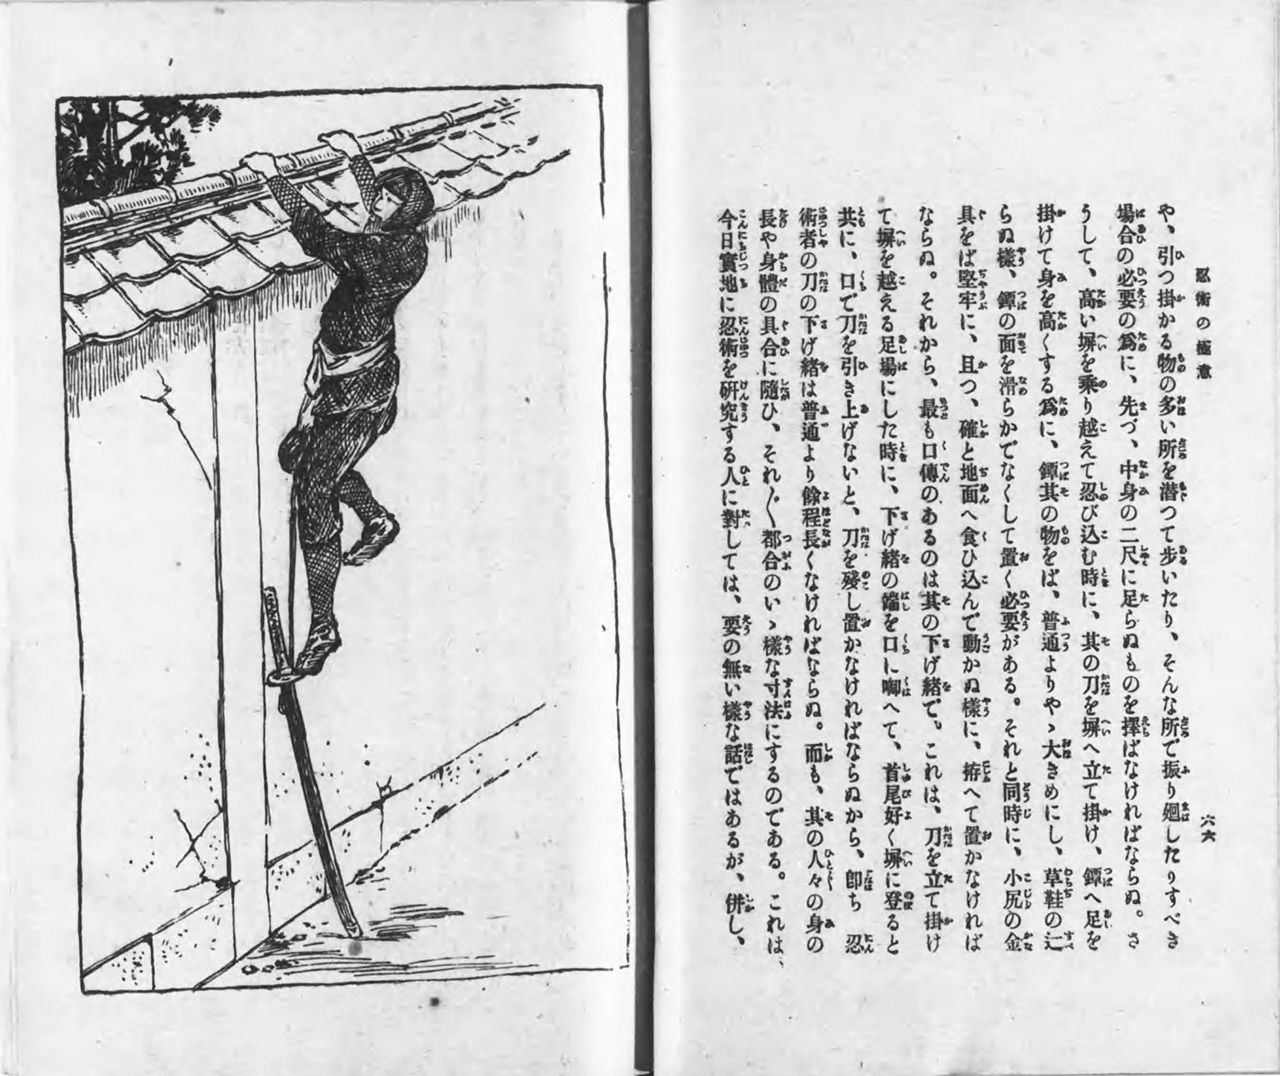 忍術の極意
六六
や、引つ掛かる物の多い所を潜つて歩いたり、そんな所で振り廻したりすべき
場合の必要の為に、先づ、中身の二尺に足らぬものを擇ばなければならぬ。さ
うして、高い塀を乗り越えて忍び込む時に、其の刀を塀へ立て掛け、鐔へ足を
掛けて身を高くする為に、鐔其の物をば、普通よりやゝ大きめにし、草鞋の辷
らぬ樣、鐔の面を滑らかでなくして置く必要がある。それと同時に、小尻の金
具をば堅牢に、且つ、確と地面へ食ひ込んで動かぬ樣に、拵へて置かなければ
ならぬ。それから、最も口傳のあるのは其の下げ緒で、これは、刀を立て掛け
て塀を越える足場にした時に、下げ緒の端を口に啣へて、首尾好く塀に登ると
共に、口で刀を引き上げないと、刀を殘し置かなければならぬから、卽ち忍
術者の刀の下げ緒は普通より餘程長くなければならぬ。而も、其の人々の身の
長や身體の具合に隨ひ、それ〲都合のいゝ樣な寸法にするのである。これは、
今日實地に忍術を硏究する人に對しては、要の無い樣な話ではあるが、併し、